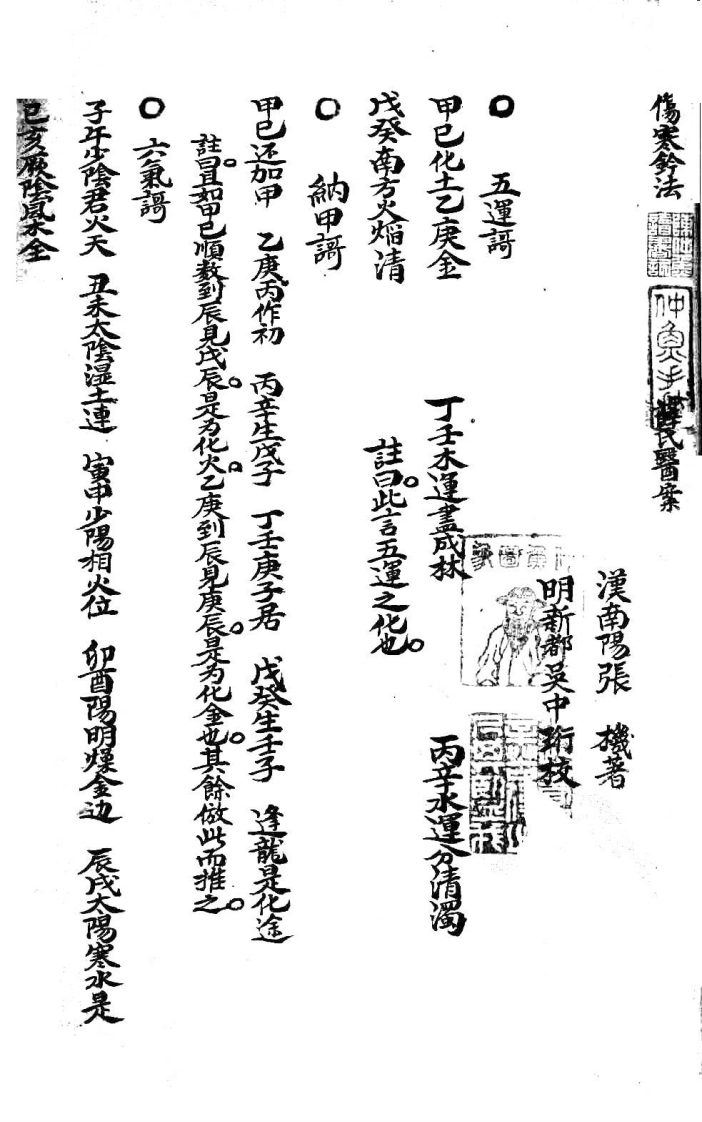 傷寒鈐法
氏醫案
漢南陽張 機著
明新都吳中珩校
○ 五運謌
甲己化土乙庚金 丁壬木運盡成林 丙辛水運分清濁
戊癸南方火熖清 註曰此言五運之化也
○ 納甲謌
甲己还加甲 乙庚丙作初 丙辛生戊子 丁壬庚子居 戊癸生壬子 逢龍是化途
註曰且如甲己順数到辰見戊辰是为化火乙庚到辰見庚辰是为化金也其餘倣此而推之
○ 六氣謌
子午少陰君火天 丑未太陰湿土連 寅申少陽相火位 卯酉陽明燥金边 辰戌太陽寒水是
巳亥厥陰風木全